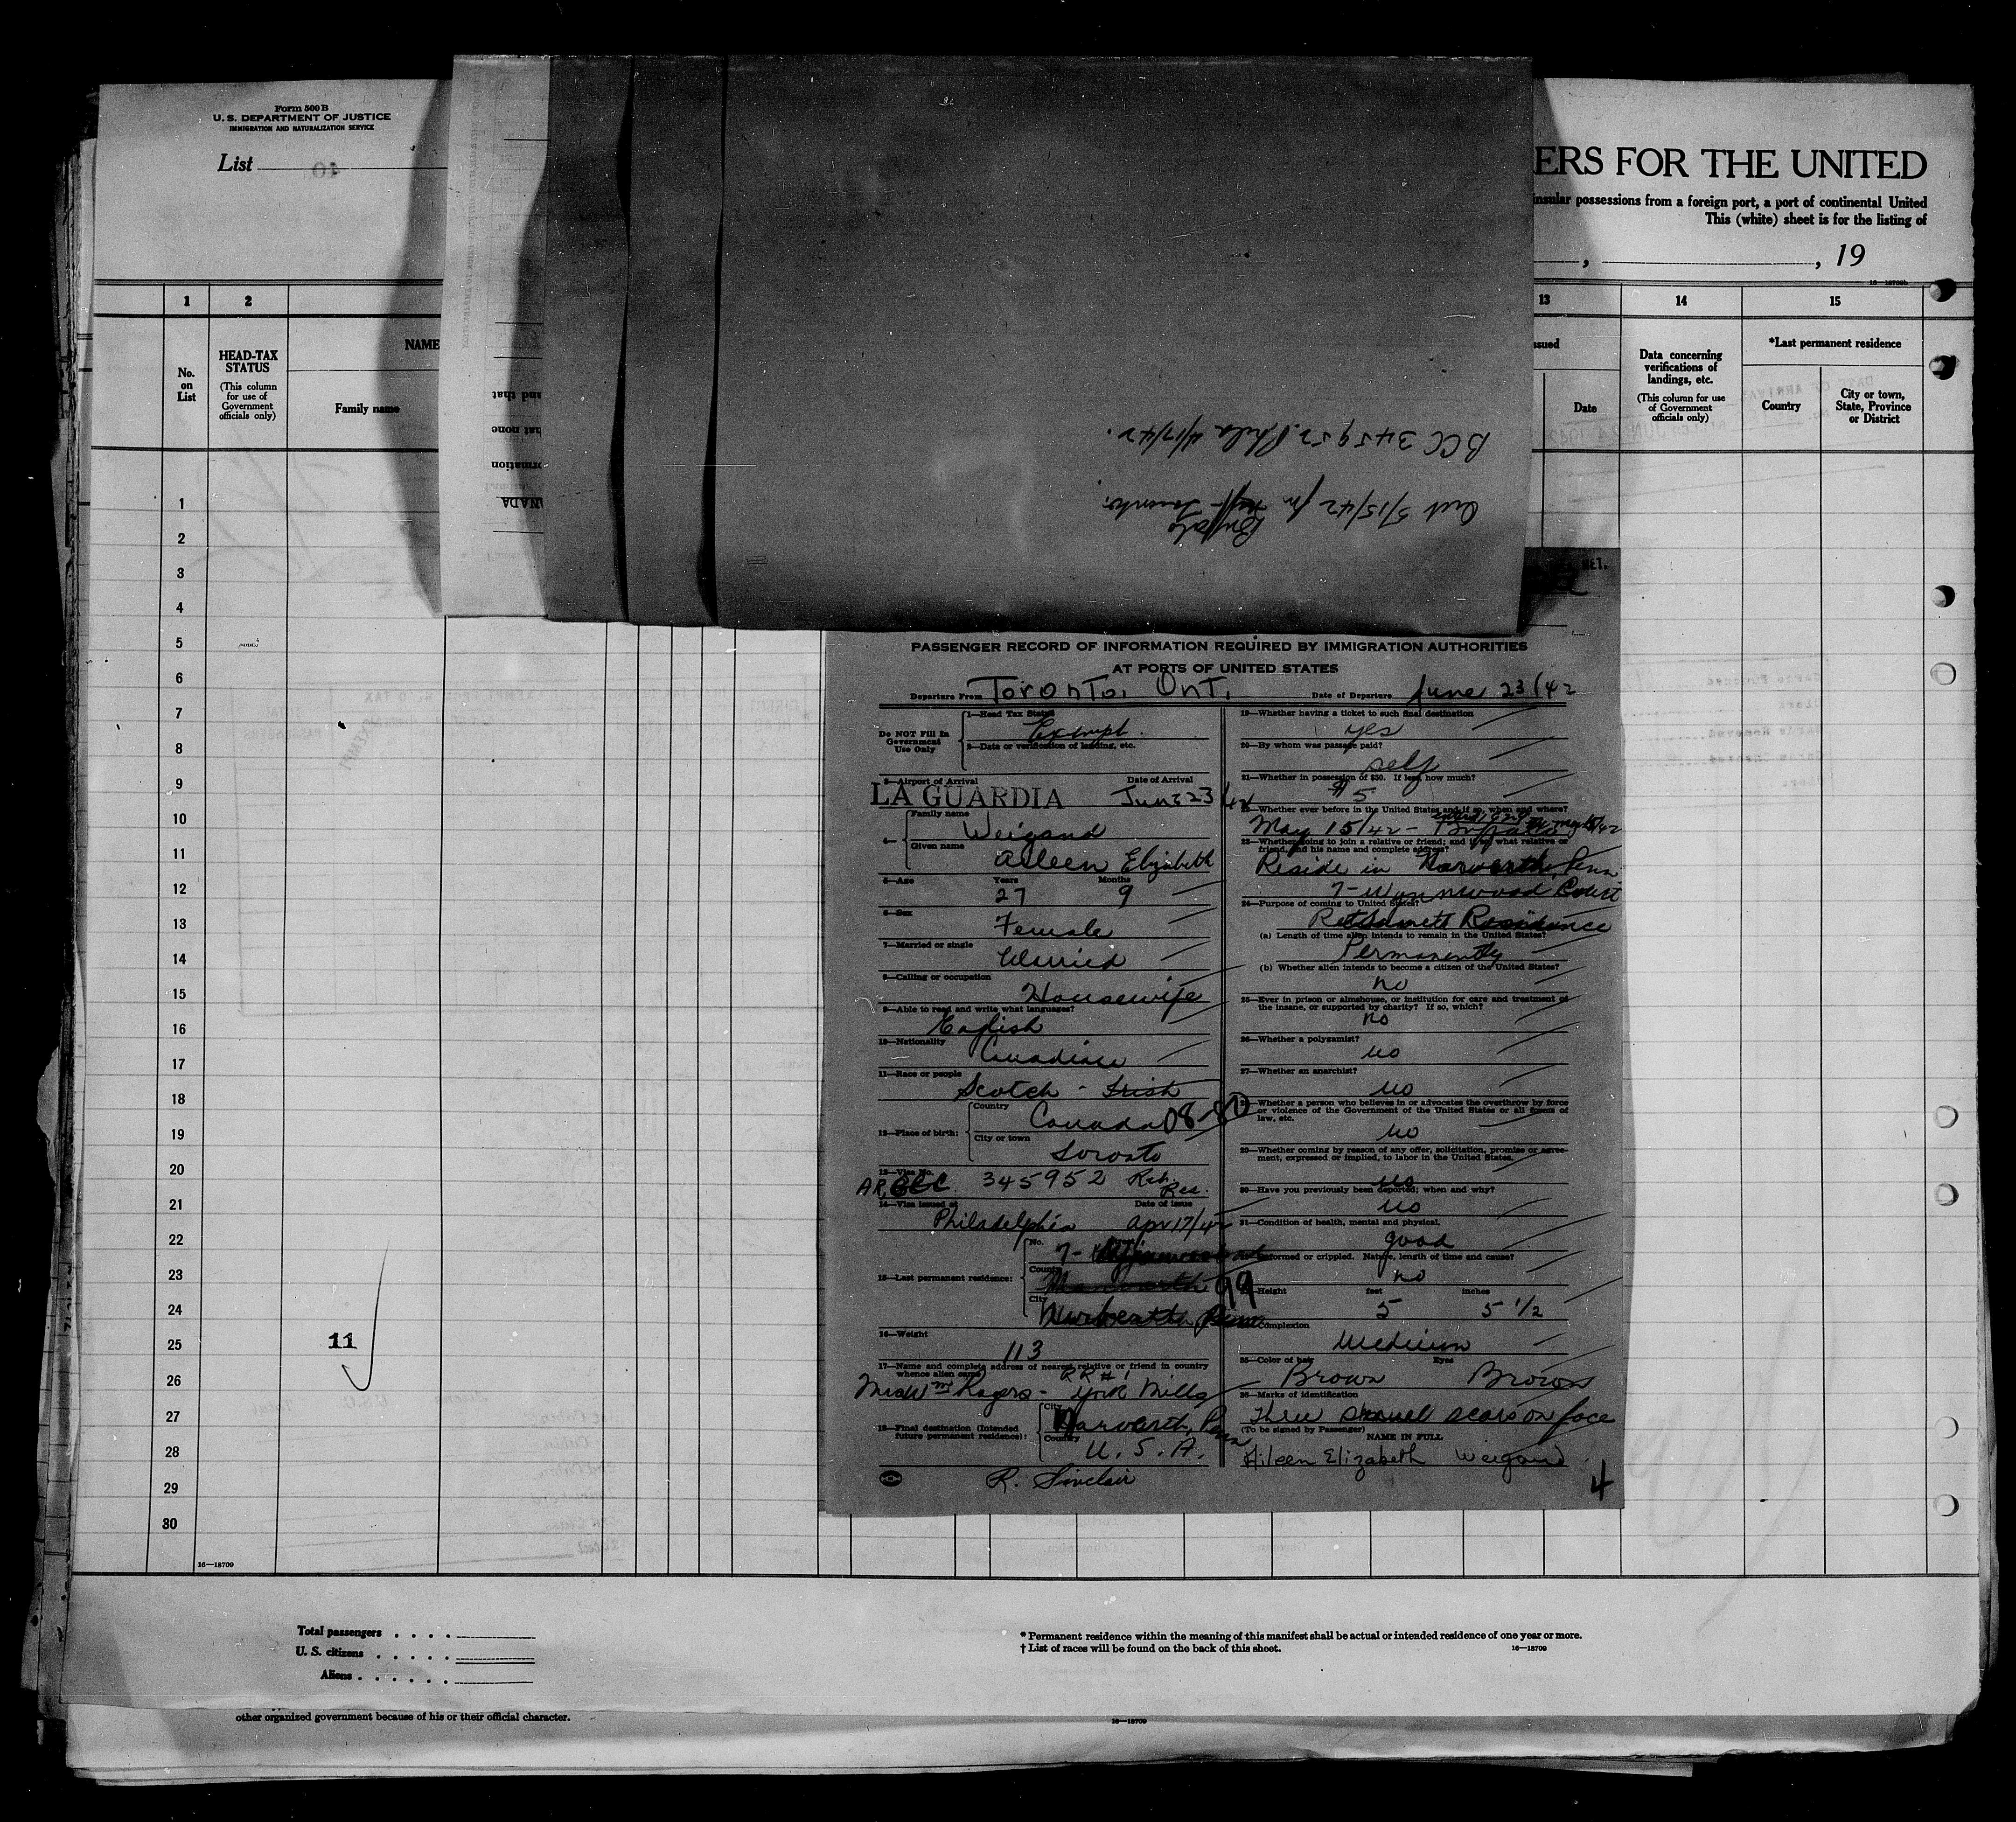 Form 500 B
U. S. DEPARTMENT OF JUSTICE
IMMIGRATION AND NATURALIZATION SERVICE
List
ERS FOR THE UNITED
insular possessions from a foreign port, a port of continental United
This (white) sheet is for the listing of
, , 19
16—18709b
1 2 13 14 15
No. on List
HEAD-TAX STATUS
(This column for use of Government officials only)
NAME
Family name
ssued
Date
Data concerning verifications of landings, etc.
(This column for use of Government officials only)
*Last permanent residence
Country
City or town, State, Province or District
and that
hat none
ormation
NADA
BCC 345952 Phila 4/17/42.
Out 5/15/42 fm Buffalo Toronto.
1
2
3
4
5
6
7
8
9
10
11
12
13
14
15
16
17
18
19
20
21
22
23
24
25
26
27
28
29
30
11
16—18709
PASSENGER RECORD OF INFORMATION REQUIRED BY IMMIGRATION AUTHORITIES
AT PORTS OF UNITED STATES
Departure From Toronto, Ont. Date of Departure June 23/42
Do NOT Fill In Government Use Only
1—Head Tax Status
Exempt.
2—Data or verification of landing, etc.
3—Airport of Arrival Date of Arrival
LA GUARDIA June 23/42
4— Family name
Weigand
Given name
Aileen Elizabeth
5—Age Years Months
27 9
6—Sex
Female
7—Married or single
Married
8—Calling or occupation
Housewife
9—Able to read and write what languages?
English
10—Nationality
Canadian
11—Race or people
Scotch - Irish
12—Place of birth: Country
Canada 08-80
City or town
Toronto
13—Visa No.
AR BCC 345952 Ret. Res.
14—Visa issued at Date of issue
Philadelphia Apr 17/42
15—Last permanent residence: No.
7-
Country
99
City
Narberth Penn
16—Weight
113
17—Name and complete address of nearest relative or friend in country whence alien came
RR #1
Mrs Wm Rogers - York Mills
18—Final destination (Intended future permanent residence): City
Narberth, Penn
Country
U. S. A.
R. Sinclair
19—Whether having a ticket to such final destination
yes
20—By whom was passage paid?
self
21—Whether in possession of $50. If less, how much?
$5
22—Whether ever before in the United States and if so, when and where?
May 15/42 - Buffalo 1929 to May 15/42
23—Whether going to join a relative or friend; and if so, what relative or friend, and his name and complete address?
Reside in Narberth, Penn
7-Wynnewood Court
24—Purpose of coming to United States?
Residence
(a) Length of time alien intends to remain in the United States?
Permanently
(b) Whether alien intends to become a citizen of the United States?
no
25—Ever in prison or almshouse, or institution for care and treatment of the insane, or supported by charity? If so, which?
no
26—Whether a polygamist?
no
27—Whether an anarchist?
no
28—Whether a person who believes in or advocates the overthrow by force or violence of the Government of the United States or all forms of law, etc.
no
29—Whether coming by reason of any offer, solicitation, promise or agreement, expressed or implied, to labor in the United States.
no
30—Have you previously been deported; when and why?
no
31—Condition of health, mental and physical.
good
Deformed or crippled. Nature, length of time and cause?
no
Height feet inches
5 5 1/2
Complexion
Medium
35—Color of hair Eyes
Brown Brown
36—Marks of identification
three small scars on face
(To be signed by Passenger) NAME IN FULL
Aileen Elizabeth Weigand
4
Total passengers
U. S. citizens
Aliens
* Permanent residence within the meaning of this manifest shall be actual or intended residence of one year or more.
† List of races will be found on the back of this sheet. 16—18709
other organized government because of his or their official character.
16—18709